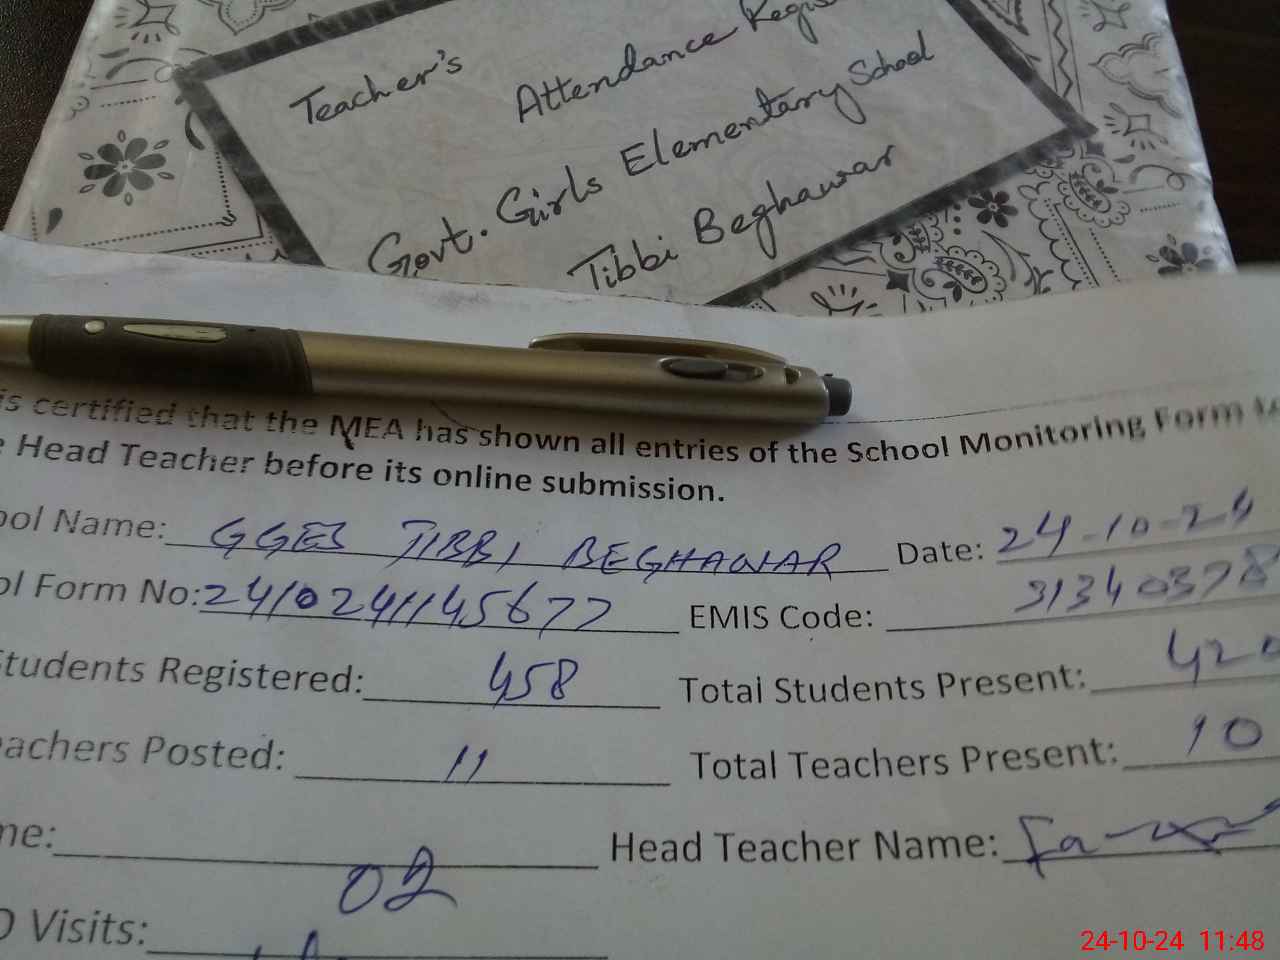 Teacher's Attendance
Govt. Girls Elementary School
Tibbi Beghawar
is certified that the MEA has shown all entries of the School Monitoring Form
Head Teacher before its online submission.
ool Name: GGES TIBBI BEGHAWAR Date: 24-10-24
ol Form No: 2410241145677 EMIS Code: 31340378
Students Registered: 458 Total Students Present: 420
eachers Posted: 11 Total Teachers Present: 10
me: Head Teacher Name:
02
O Visits:
24-10-24 11:48